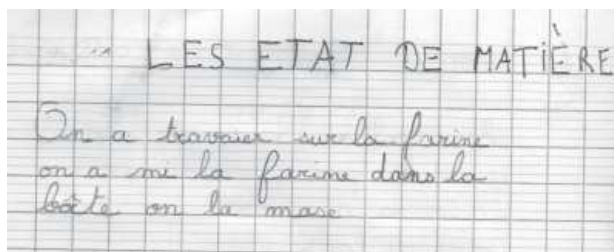 LES ETAT DE MATIÈRE
On a travaier sur la farine
on a mi la farine dans la
boîte on la mase